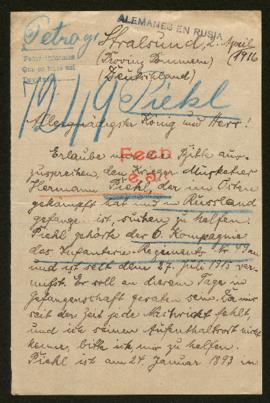 ALEMANES EN RUSIA
Petrog
Stralsund, 2. April
1916
(Provinz Pommern)
(Deutschland)
1249 Piekl
Allergnädigster König und Herr!
Erlaube mir eine Bitte aus-
zusprechen, den Krieger Musketier
Hermann Piehl, der im Osten
gekämpft hat und in Russland
gefangen ist, suchen zu helfen.
Piehl gehörte der 6. Kompagnie
des Infanterie Regiments Nr.
und ist seit dem 27. Juli 1915 ver-
mißt. Er soll an diesem Tage in
Gefangenschaft geraten sein. Da mir
seit der Zeit jede Nachricht fehlt,
und ich seinen Aufenthaltsort nicht
kenne, bitte ich mir zu helfen.
Piehl ist am 24. Januar 1893 in